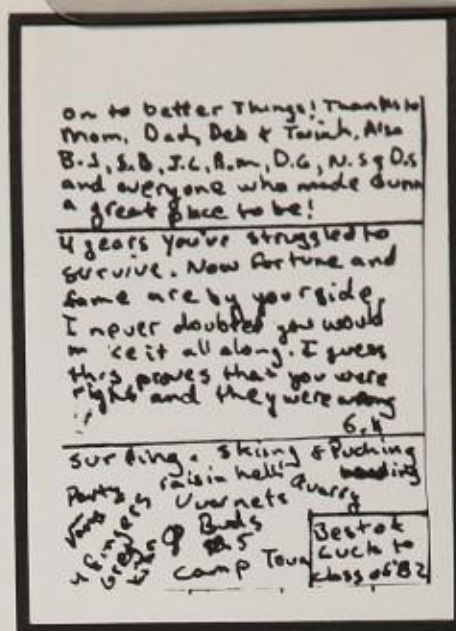 on to better Things! Thanks to
Mom, Dad, Deb & Twink, Also
B.J, S.B, J.C, R.m, D.G, N.S & D.S
and everyone who made Dunn
a great place to be!
4 years you've struggled to
survive. Now fortune and
fame are by your side.
I never doubted you would
it all along. I guess
this proves that you were
right and they were wrong
6.4
surfing, skiing &
Party raisin hell Quarry
Vuarnets
4 fingers
Greg
Buds
Camp
Best of
Luck to
class of 82